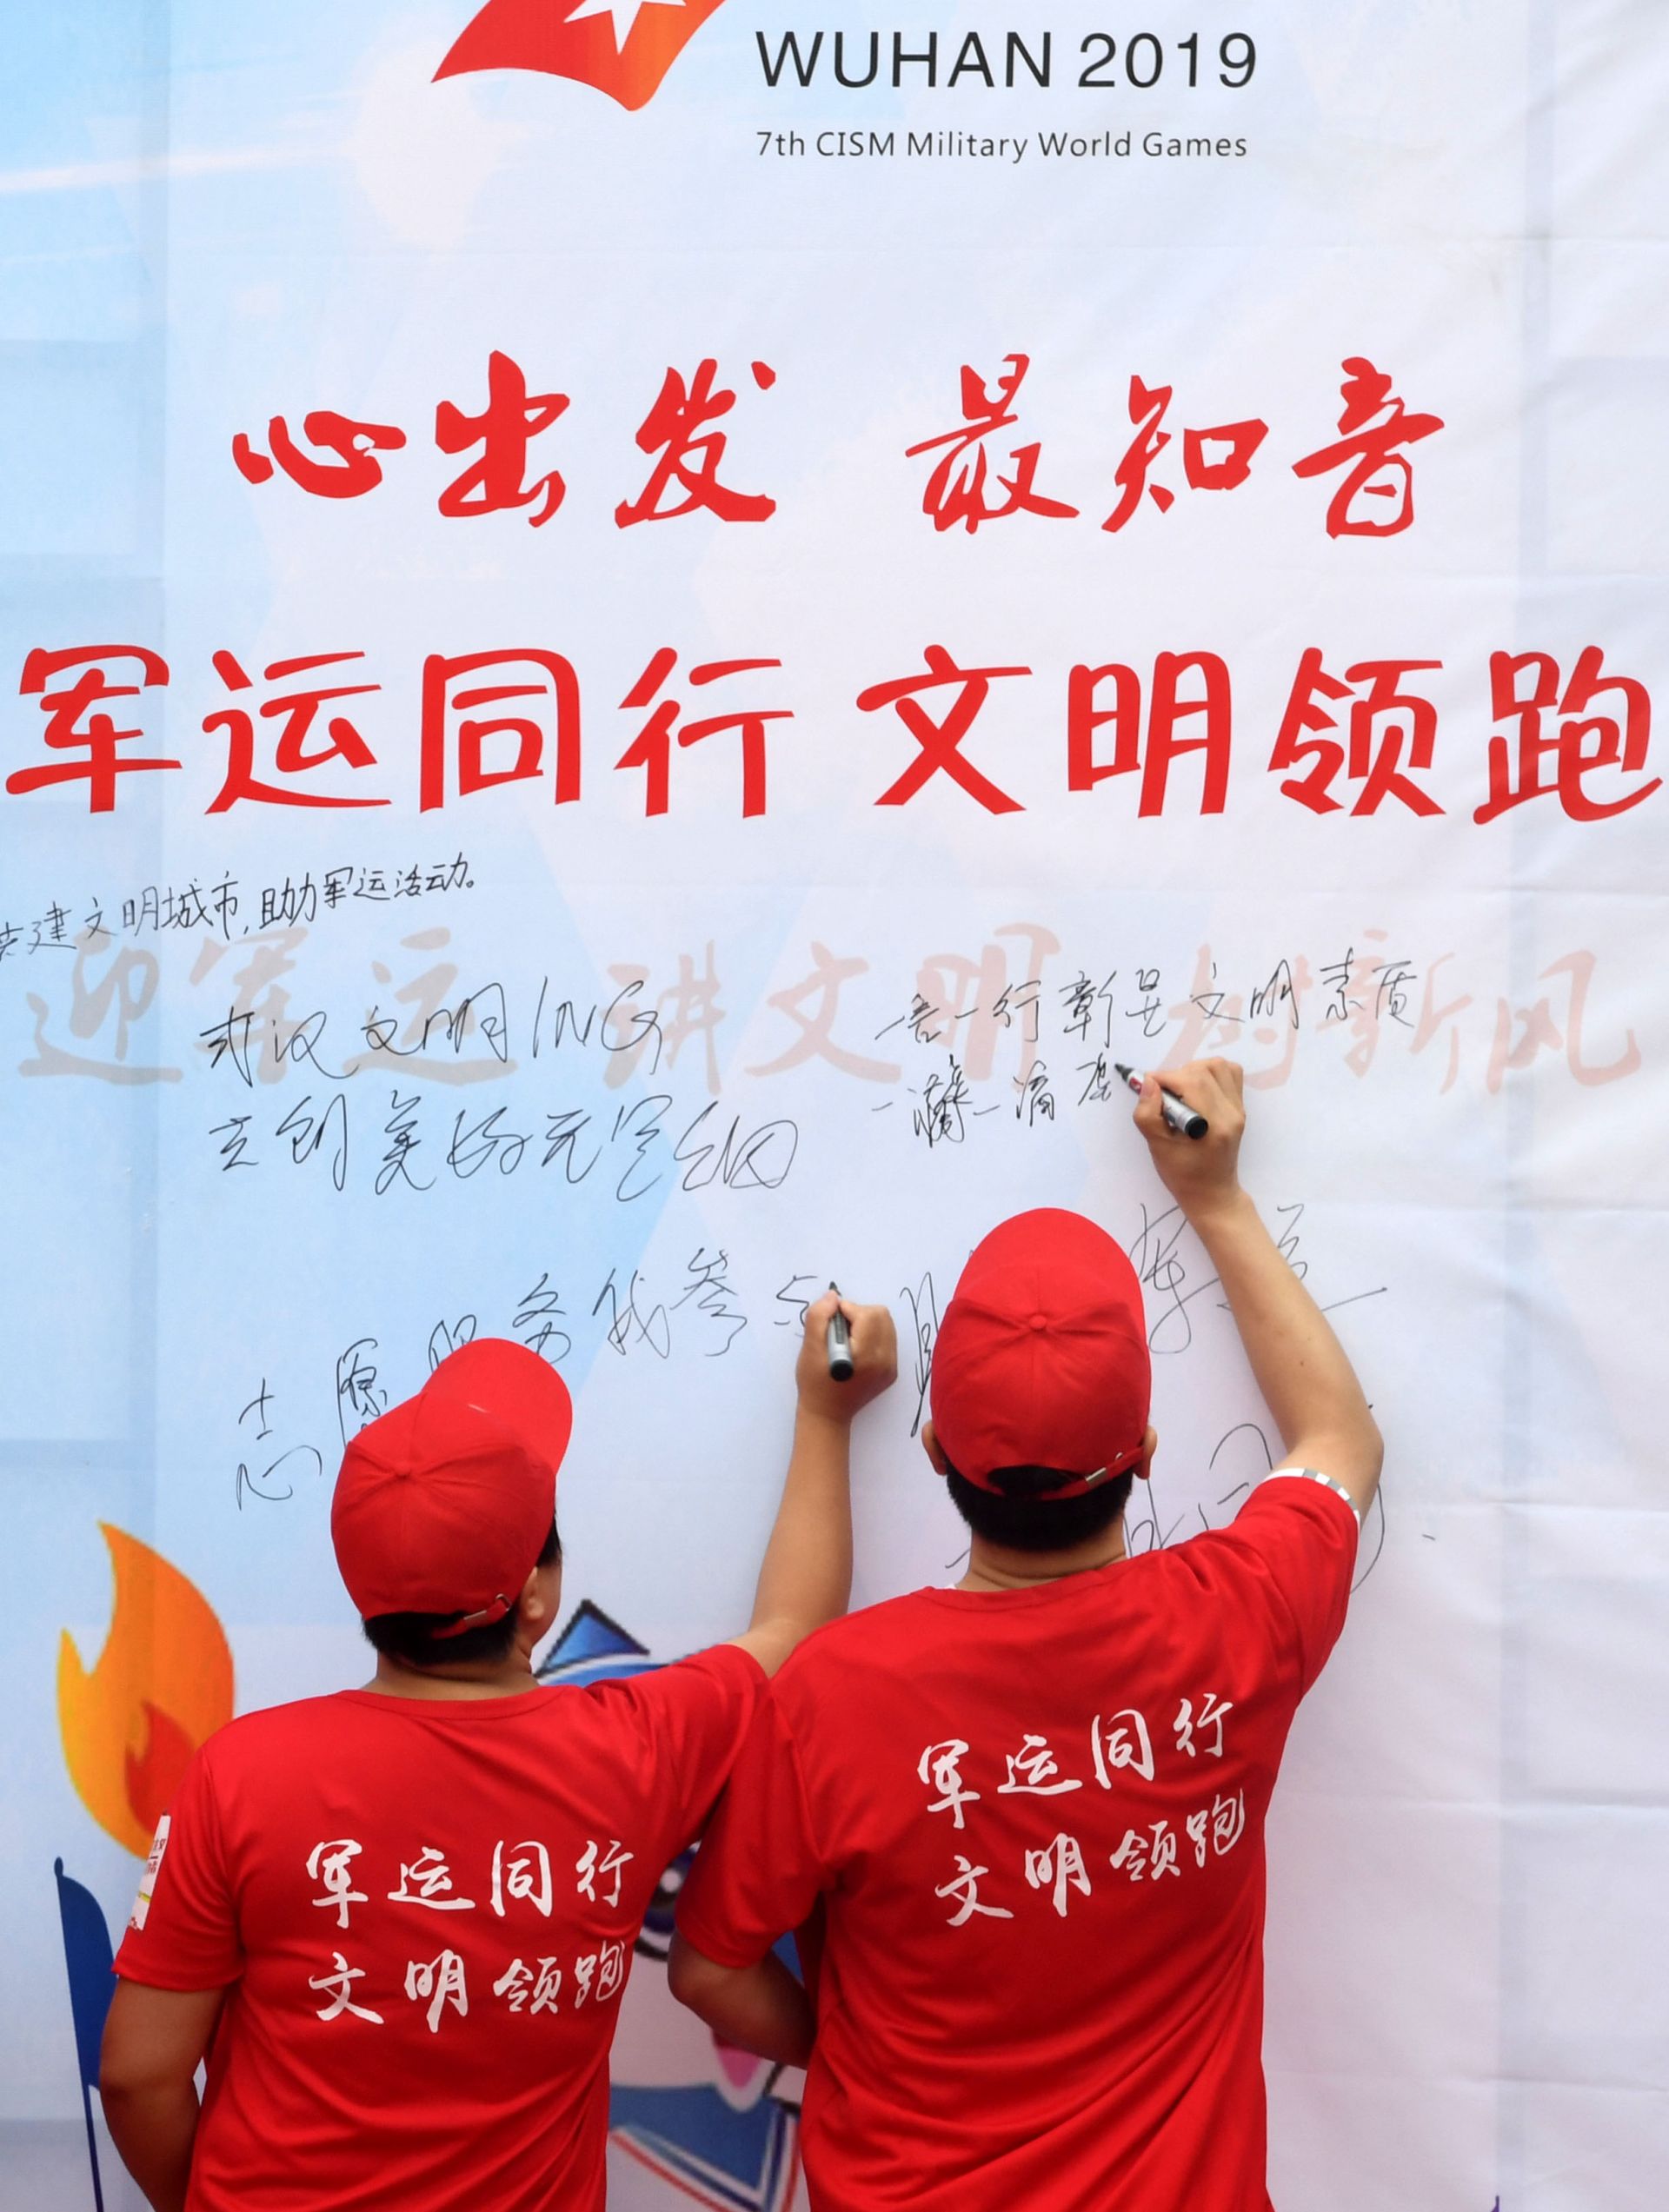 WUHAN 2019
7th CISM Military World Games
心出发 最知音
军运同行 文明领跑
共建文明城市,助力军运活动。
迎军运 讲文明 树新风
武汉文明ING
言一行彰显文明素质
立创美好
一滴
志愿服务我参与
助 军运
军运同行
文明领跑
军运同行
文明领跑